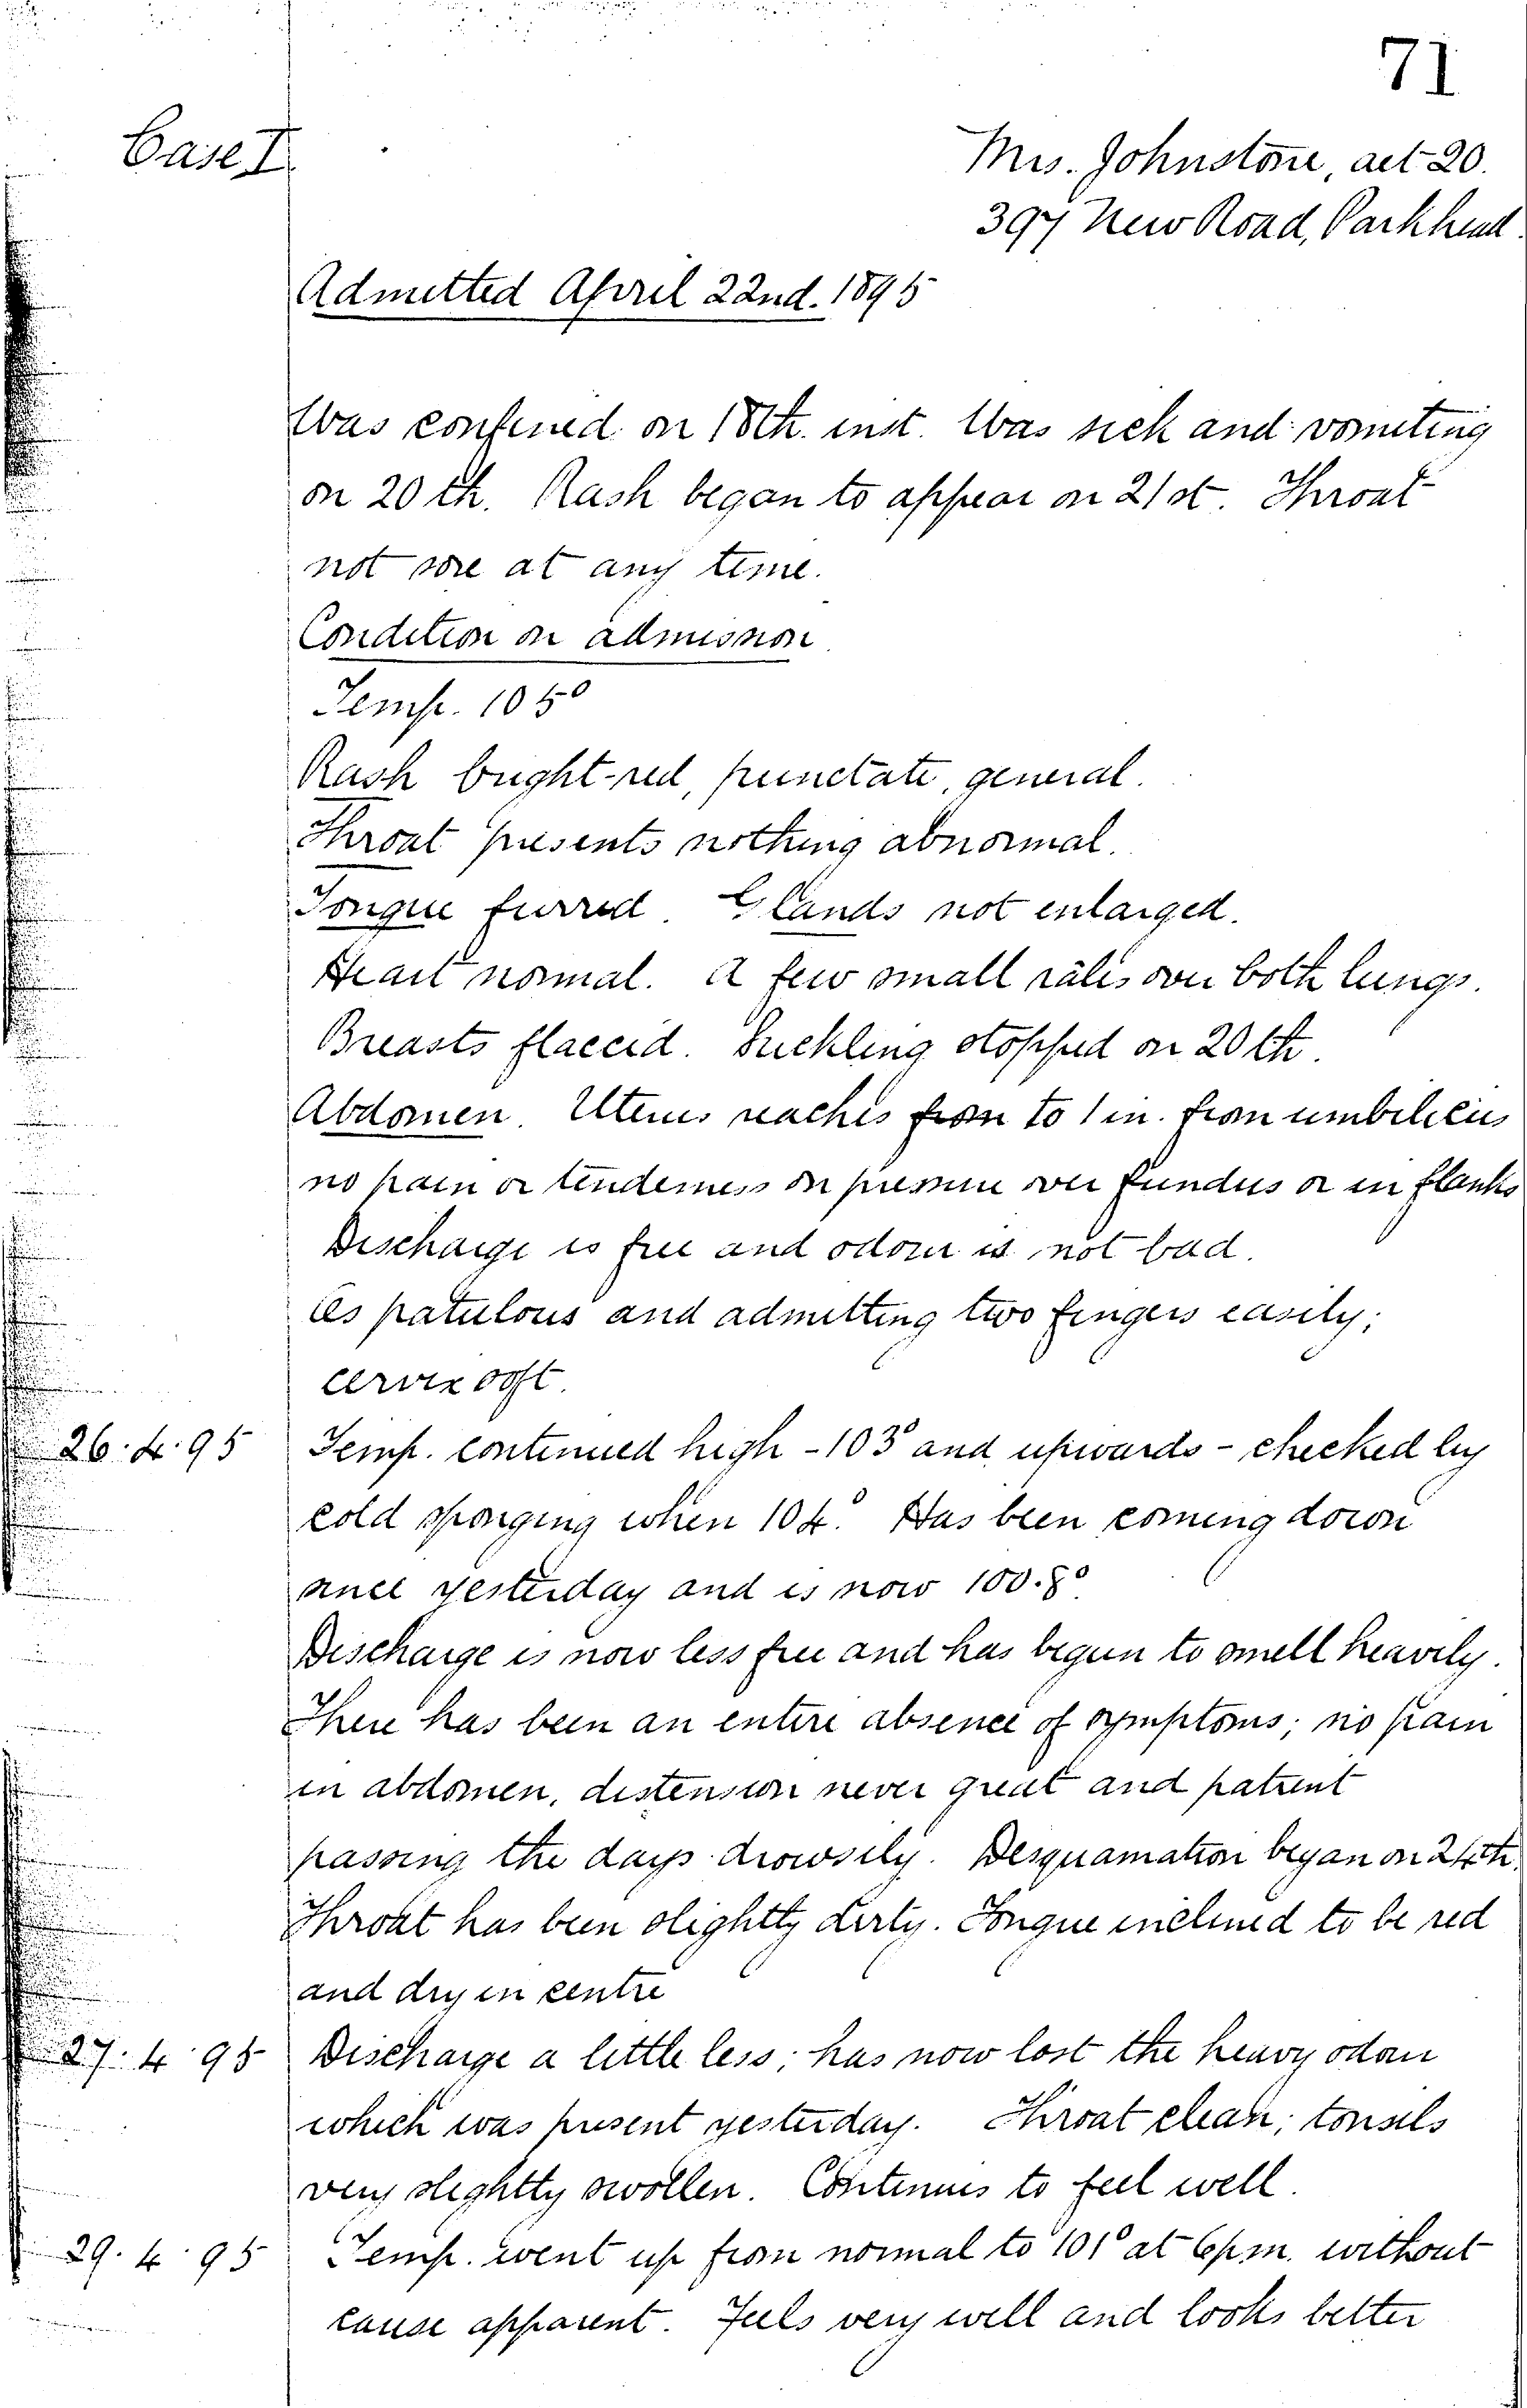 71
Case I
Mrs. Johnstone, aet 20.
397 New Road, Parkhead.
Admitted April 22nd. 1895
Was confined on 18th. inst. Was sick and vomiting
on 20th. Rash began to appear on 21st. Throat
not sore at any time.
Condition on admission
Temp. 105°
Rash bright-red, punctate, general.
Throat presents nothing abnormal.
Tongue furred. Glands not enlarged.
Heart normal. A few small râles over both lungs.
Breasts flaccid. Suckling stopped on 20th.
Abdomen. Uterus reaches from to 1 in. from umbilicus
no pain or tenderness on pressure over fundus or in flanks
Discharge is free and odour is not bad.
Os patulous and admitting two fingers easily;
cervix soft.
26.4.95 Temp. continued high - 103° and upwards - checked by
cold sponging when 104°. Has been coming down
since yesterday and is now 100.8°.
Discharge is now less free and has begun to smell heavily.
There has been an entire absence of symptoms; no pain
in abdomen, distension never great and patient
passing the days drowsily. Desquamation began on 24th.
Throat has been slightly dirty. Tongue inclined to be red
and dry in centre
27.4.95 Discharge a little less; has now lost the heavy odour
which was present yesterday. Throat clean; tonsils
very slightly swollen. Continues to feel well.
29.4.95 Temp. went up from normal to 101° at 6 p.m. without
cause apparent. Feels very well and looks better